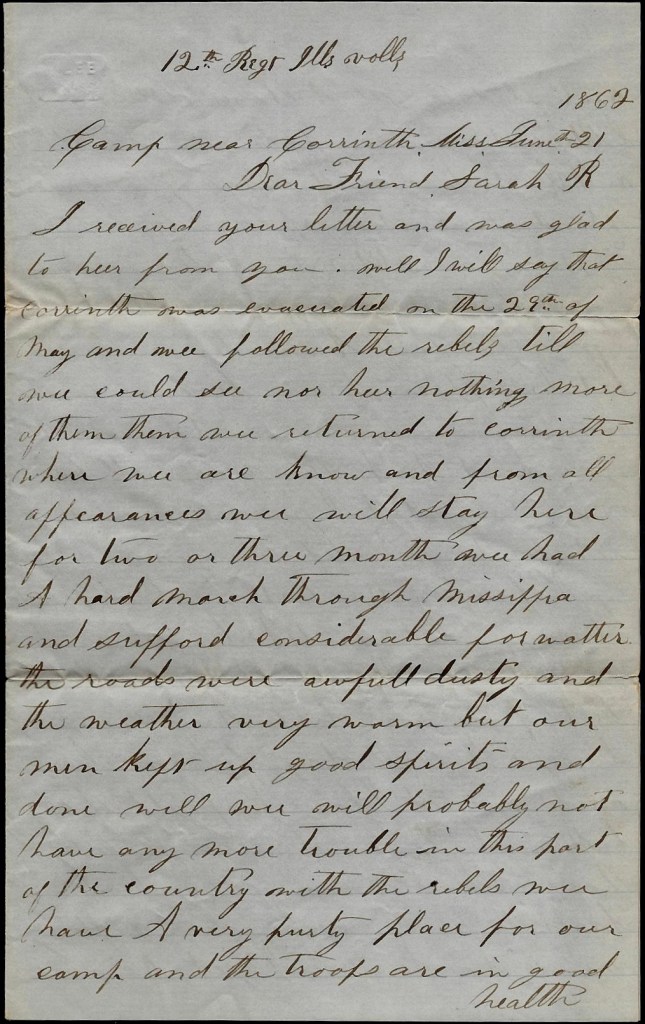 12th Regt Ills volls
1862
Camp near Corrinth Miss June th 21
Dear Friend Sarah R
I received your letter and was glad
to heer from you . well I will say that
corrinth was evacuated on the 29th of
May and wee followed the rebels till
wee could see nor heer nothing more
of them them wee returned to corrinth
where wee are know and from all
appearances wee will stay here
for two or three month wee had
A hard march through Missippa
and sufford considerable for watter
the roads were awfull dusty and
the weather very warm but our
men kept up good spirits and
done well wee will probably not
have any more trouble in this part
of the country with the rebels wee
have A very purty place for our
camp and the troops are in good
health